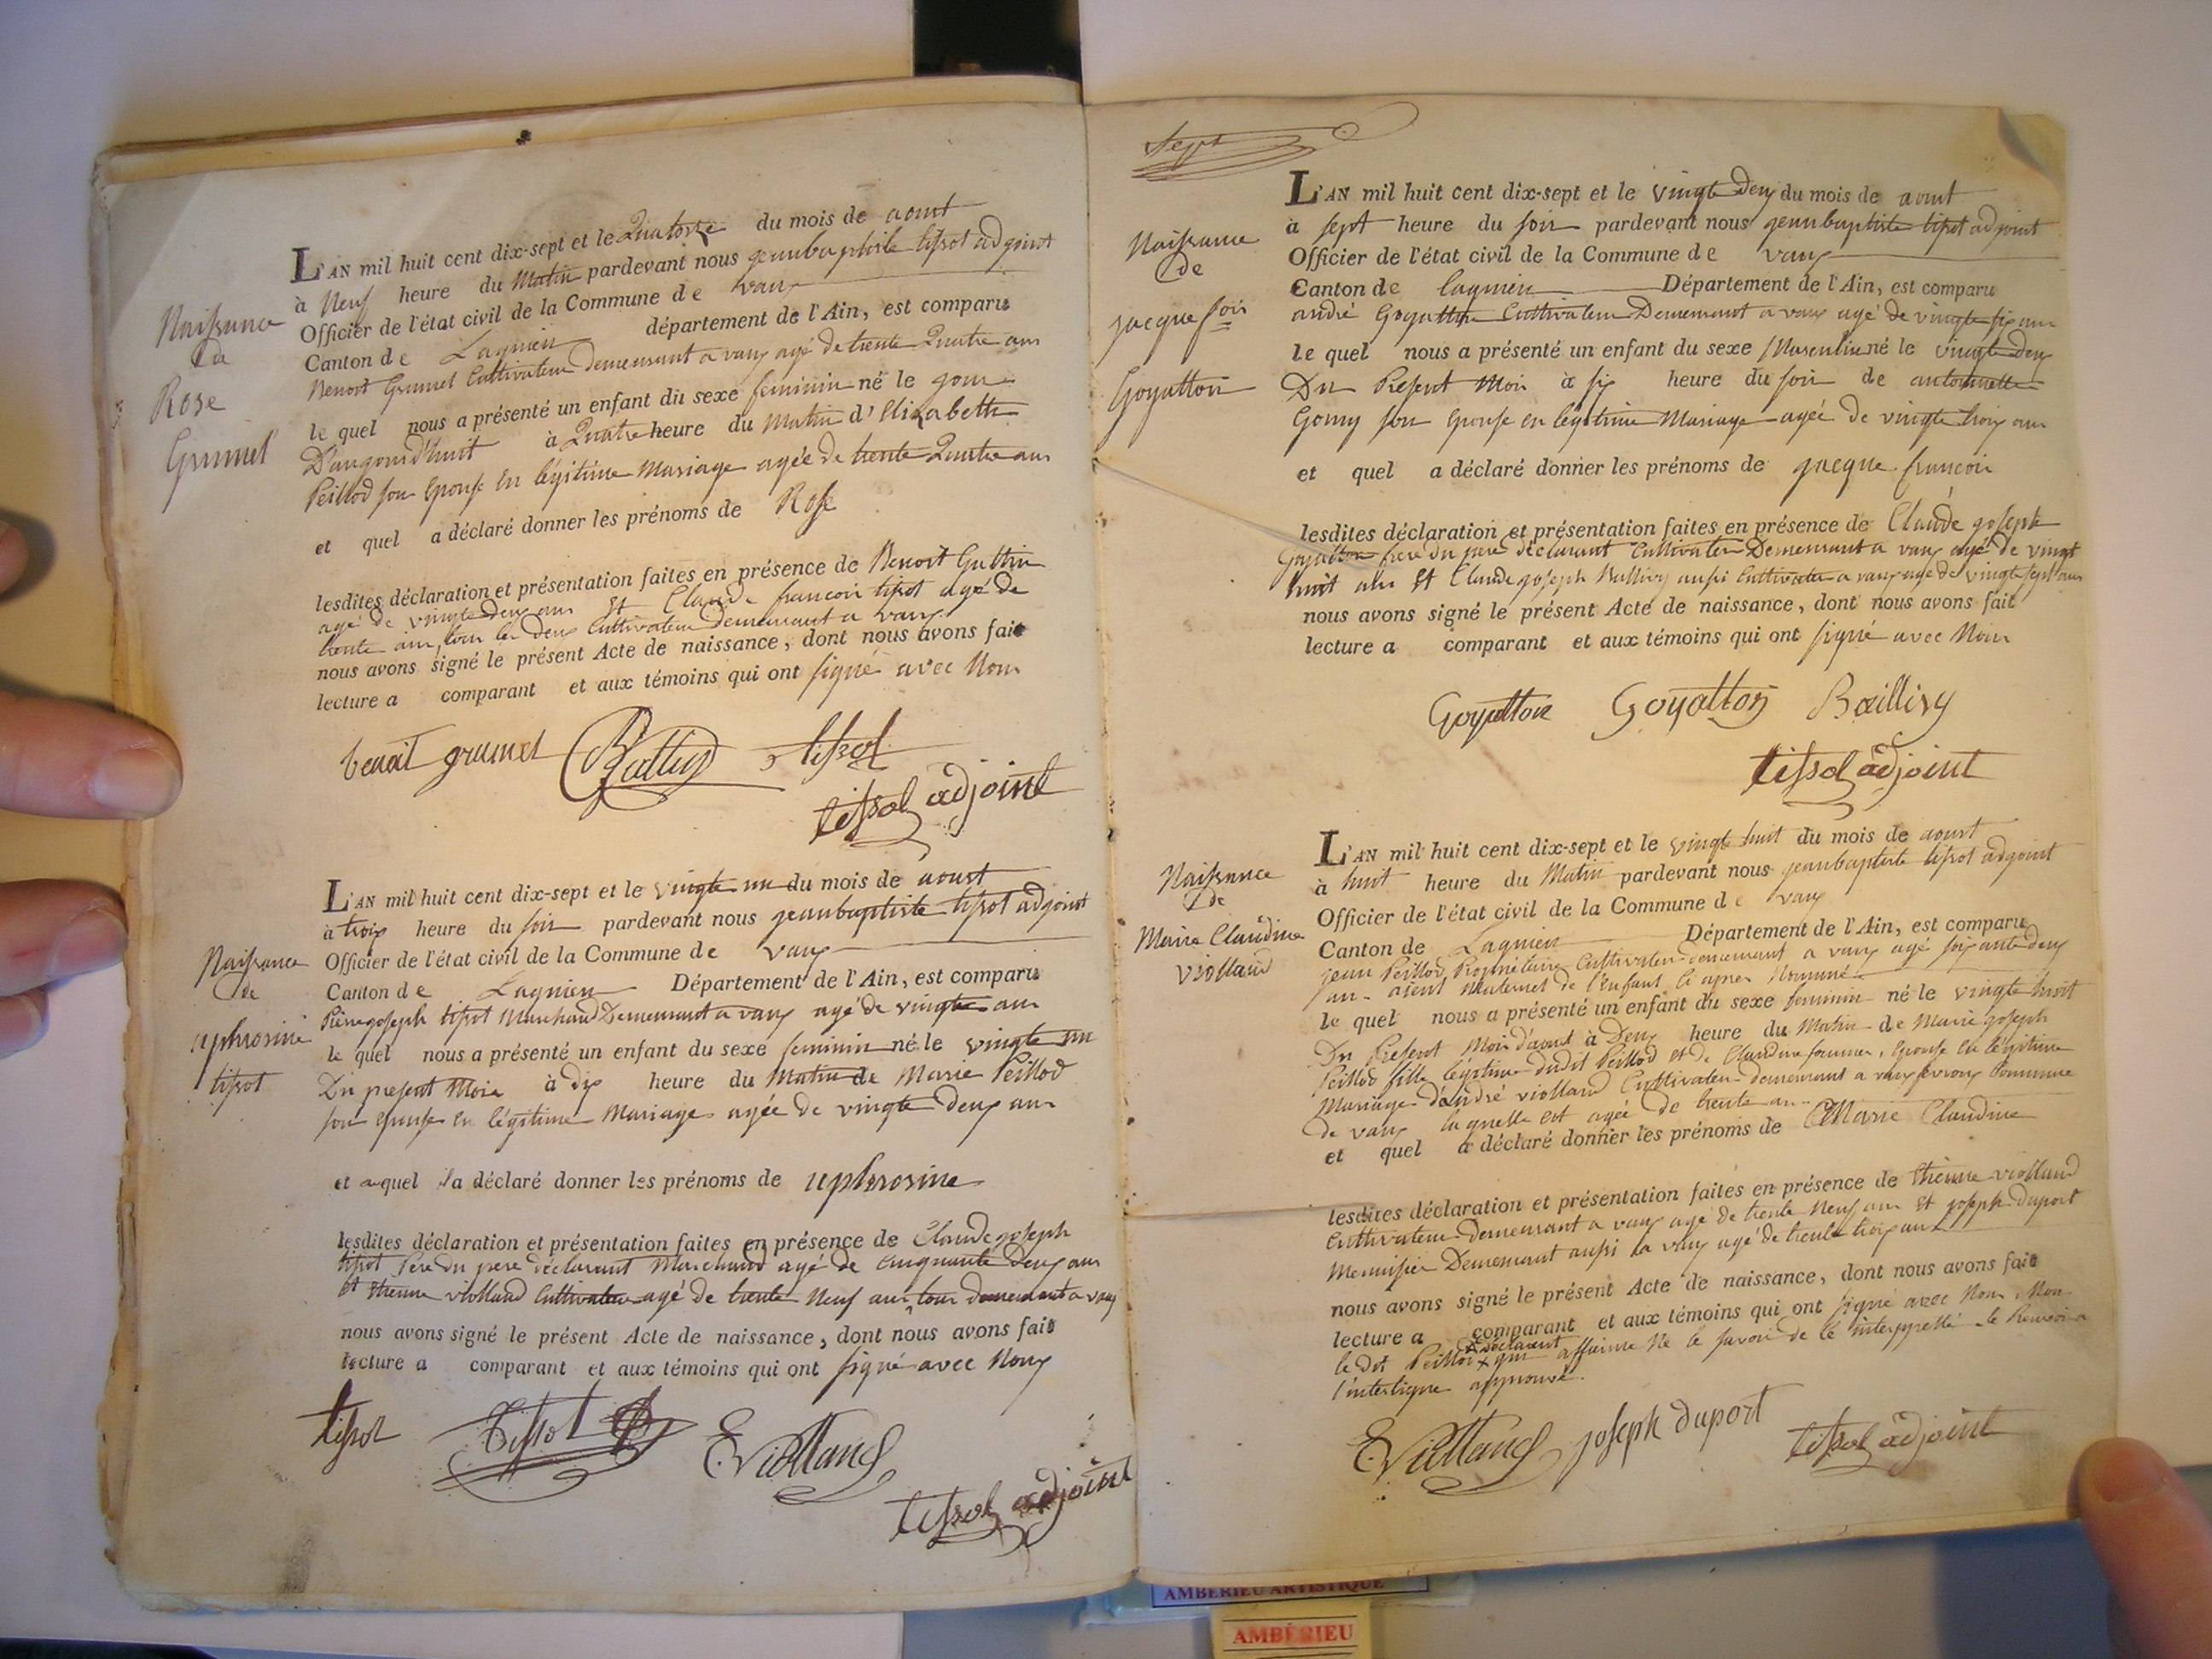 Naissance
de
Rose
Grumel
L'AN mil huit cent dix-sept et le Quatorze du mois de aoust
à Neuf heure du Matin pardevant nous jeanbaptiste tissot adjoint
Officier de l'état civil de la Commune de vaux
Canton de Lagnieu département de l'Ain, est comparu
Benoit Grumel Cultivateur demeurant a vaux agé de trente Quatre ans
le quel nous a présenté un enfant du sexe feminin né le jour
D'aujourd'huit à Quatre heure du Matin d'Elizabeth
Peillod son Epouse En légitime Mariage agée de trente Quatre ans
et quel a déclaré donner les prénoms de Rose
lesdites déclaration et présentation faites en présence de Benoit Guttin
agé de vingte deux ans Et Claude francois tissot agé de
trente ans, tous les deux Cultivateur Demeurant a vaux
nous avons signé le présent Acte de naissance, dont nous avons fait
lecture a comparant et aux témoins qui ont signé avec Nous
benoit grumel tissot
tissot adjoint
Naissance
de
uphrosine
tissot
L'AN mil huit cent dix-sept et le vingte un du mois de aoust
à trois heure du soir pardevant nous jeanbaptiste tissot adjoint
Officier de l'état civil de la Commune de vaux
Canton de Lagnieu Département de l'Ain, est comparu
Pierre joseph tissot Marchand Demeurant a vaux agé de vingte ans
le quel nous a présenté un enfant du sexe feminin né le vingte un
Du present Mois à dix heure du Matin de Marie Peillod
son Epouse En légitime Mariage agée de vingte deux ans
et quel a déclaré donner les prénoms de uphrosine
lesdites déclaration et présentation faites en présence de Claude joseph
tissot Pere du pere déclarant Marchand agé de Cinquante Deux ans
Et Etienne violland Cultivateur agé de trente Neuf ans, tous demeurant a vaux
nous avons signé le présent Acte de naissance, dont nous avons fait
lecture a comparant et aux témoins qui ont signé avec Nous
tissot Tissot E. Violland
tissot adjoint
Sept
Naissance
de
jacque fois
Goyatton
L'AN mil huit cent dix-sept et le vingte Deux du mois de aoust
à sept heure du soir pardevant nous jeanbaptiste tissot adjoint
Officier de l'état civil de la Commune de vaux
Canton de Lagnieu Département de l'Ain, est comparu
andré Goyatton Cultivateur Demeurant a vaux agé de vingte six ans
le quel nous a présenté un enfant du sexe Masculin né le vingte Deux
Du Present Mois à six heure du soir de antoinette
Gomy son Epouse en légitime Mariage agée de vingte trois ans
et quel a déclaré donner les prénoms de jacque francois
lesdites déclaration et présentation faites en présence de Claude joseph
Goyatton frere du pere déclarant Cultivateur Demeurant a vaux agé de vingt
huit ans Et Claude joseph Baillivy aussi Cultivateur a vaux agé de vingte sept ans
nous avons signé le présent Acte de naissance, dont nous avons fait
lecture a comparant et aux témoins qui ont signé avec Nous
Goyatton Goyatton Baillivy
tissot adjoint
Naissance
de
Marie Claudine
violland
L'AN mil huit cent dix-sept et le vingte huit du mois de aoust
à huit heure du Matin pardevant nous jeanbaptiste tissot adjoint
Officier de l'état civil de la Commune de vaux
Canton de Lagnieu Département de l'Ain, est comparu
jean Peillod Propriétaire Cultivateur demeurant a vaux agé soixante deux
ans aieul Maternel de l'enfant Ci apres Nommé
le quel nous a présenté un enfant du sexe feminin né le vingte huit
Du Present Mois d'aoust à Deux heure du Matin de Marie joseph
Peillod fille légitime dudit Peillod et de Claudine fournier, Epouse En légitime
Mariage d'andré violland Cultivateur demeurant a vaux fevroux Commune
de vaux laquelle est agée de trente ans
et quel a déclaré donner les prénoms de Marie Claudine
lesdites déclaration et présentation faites en présence de Etienne violland
Cultivateur demeurant a vaux agé de trente Neuf ans Et joseph duport
Menuisier Demeurant aussi a vaux agé de trente trois ans
nous avons signé le présent Acte de naissance, dont nous avons fait
lecture a comparant et aux témoins qui ont signé avec Nous, Non
le dit Peillod déclarant qui affirme Ne le savoir de le interppellé
l'interligne approuvé.
E. Violland joseph duport tissot adjoint
AMBERIEU ARTISTIQUE
AMBÉRIEU